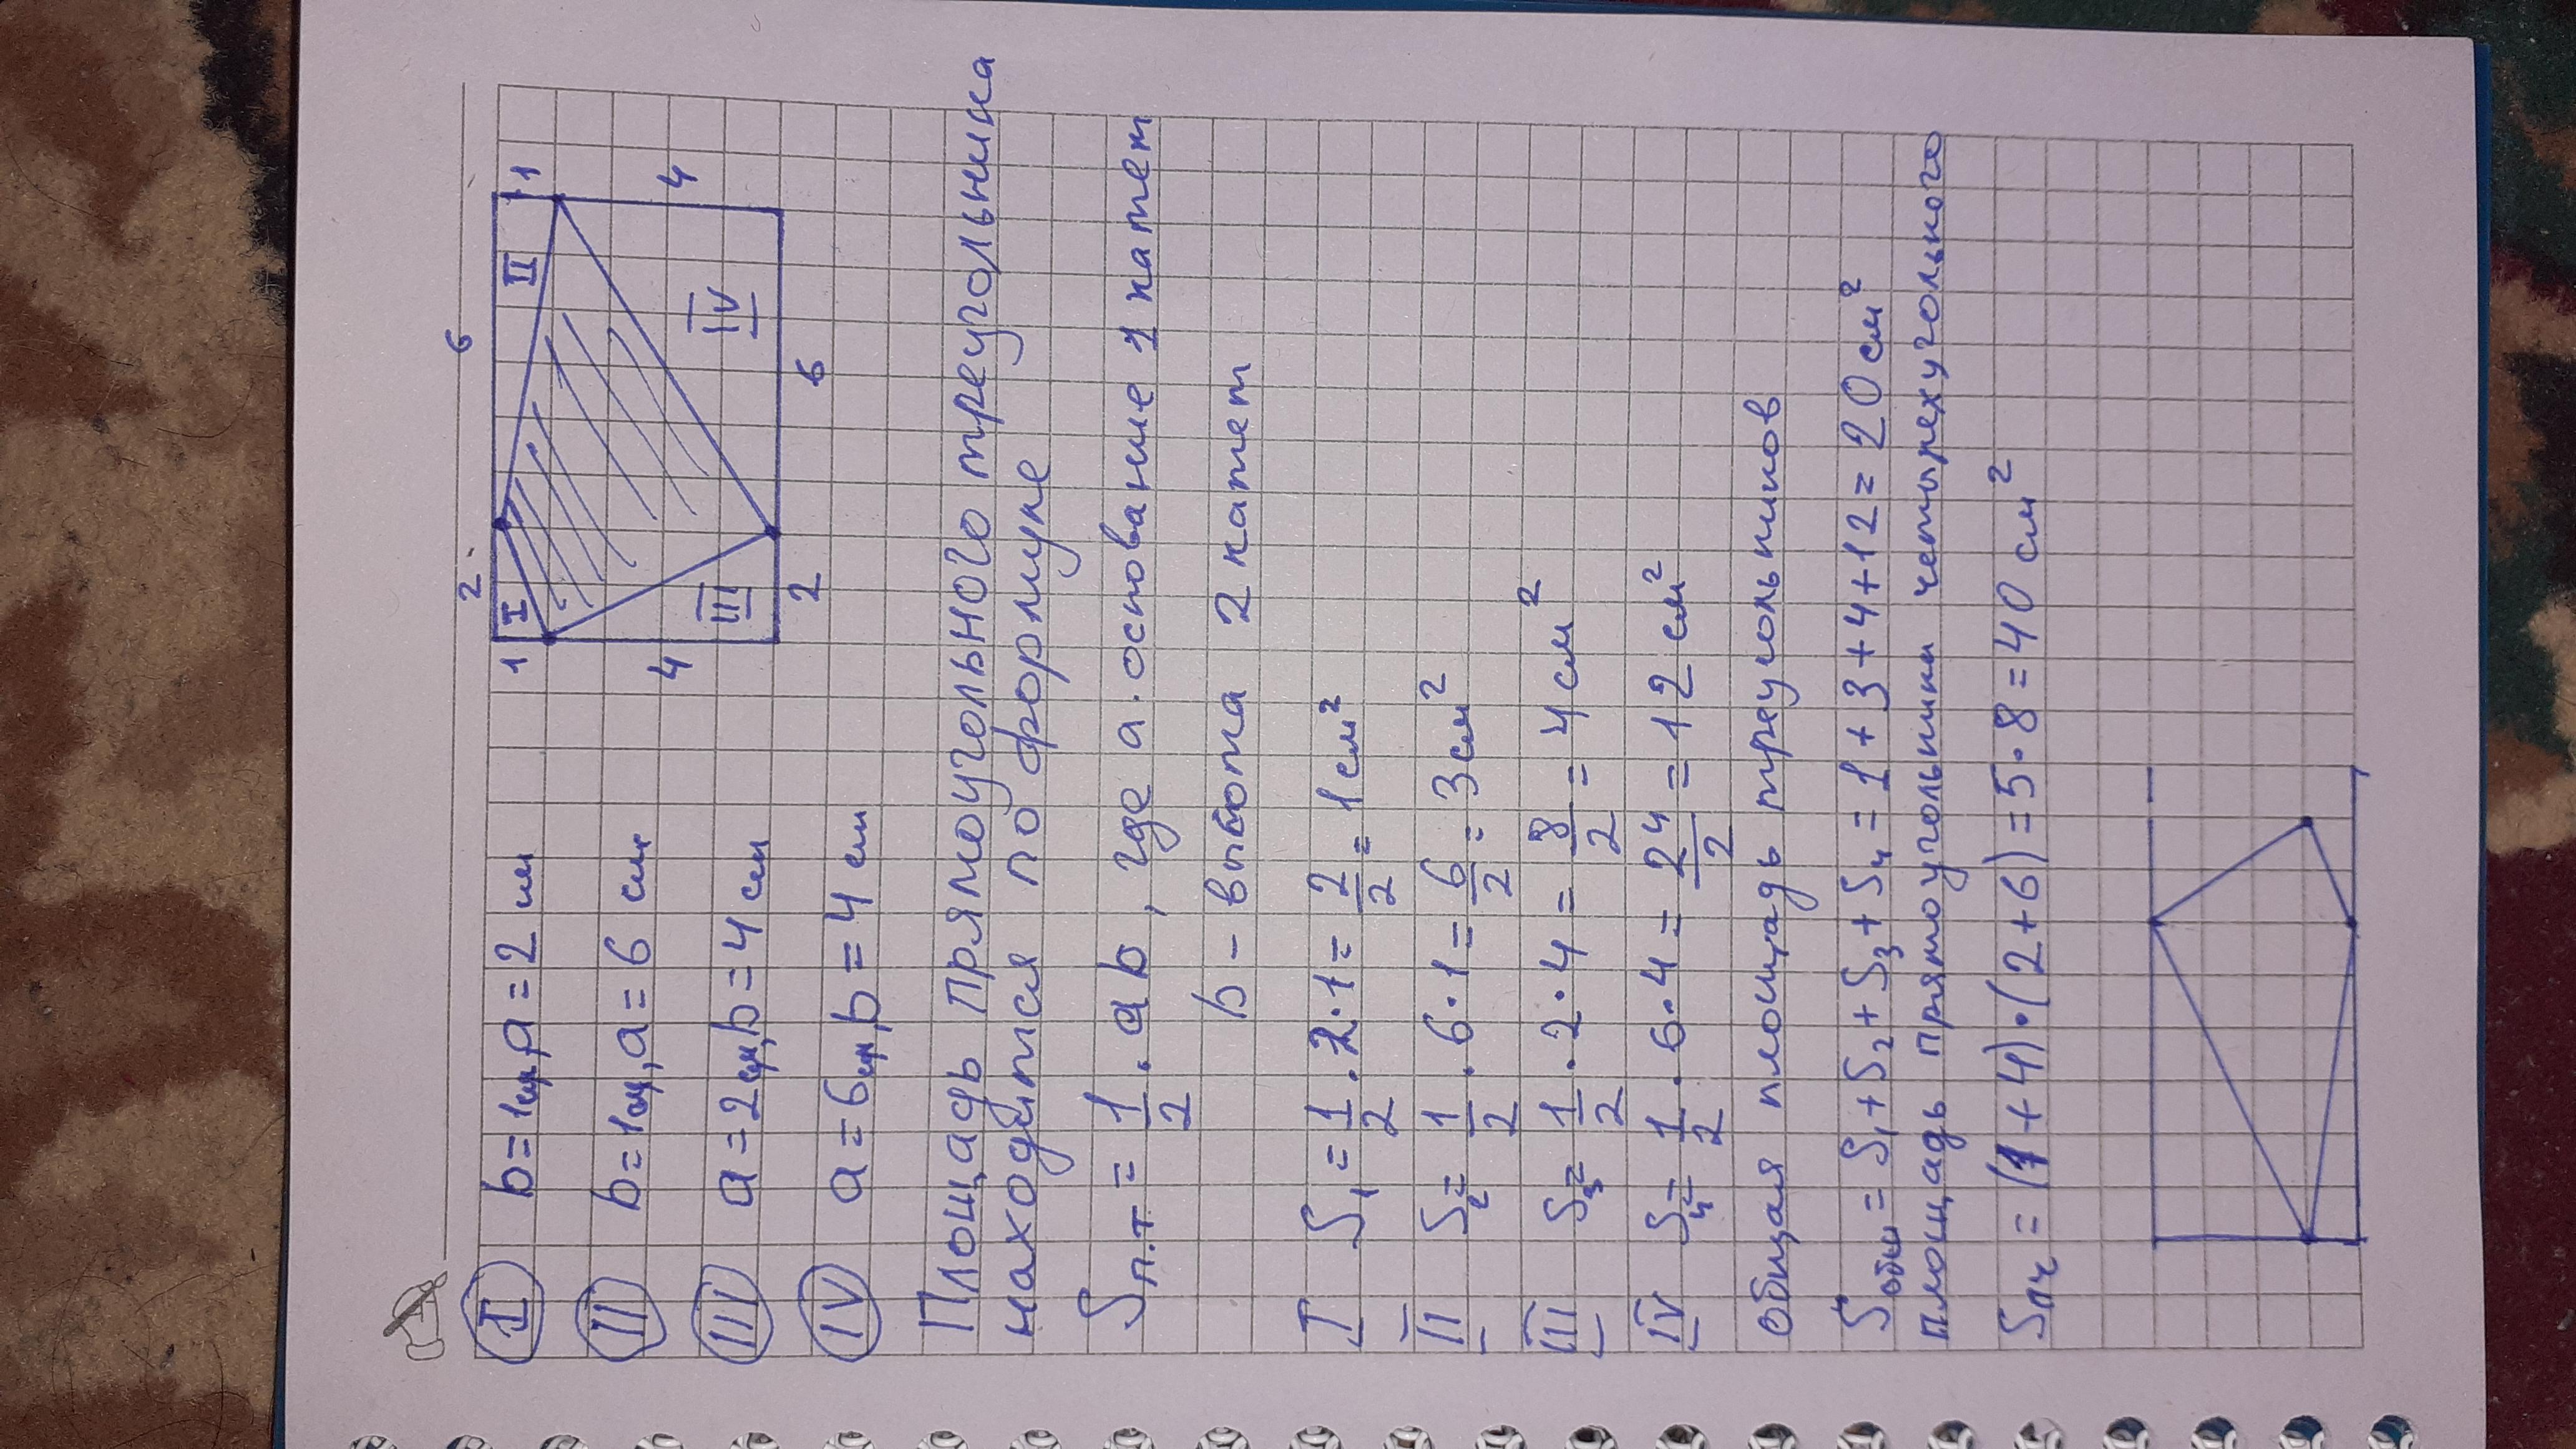 I b=1см, a=2 см
II b=1см, a=6 см
III a=2см, b=4 см
IV a=6см, b=4 см
2 6
1 I II 1
4 III IV 4
2 6
Площадь прямоугольного треугольника
находится по формуле
Sп.т = 1/2 · ab, где a - основание 1 катет
b - высота 2 катет
I S₁ = 1/2 · 2·1 = 2/2 = 1 см²
II S₂ = 1/2 · 6·1 = 6/2 = 3 см²
III S₃ = 1/2 · 2·4 = 8/2 = 4 см²
IV S₄ = 1/2 · 6·4 = 24/2 = 12 см²
общая площадь треугольников
Sобщ = S₁ + S₂ + S₃ + S₄ = 1 + 3 + 4 + 12 = 20 см²
площадь прямоугольника четырехугольного
Sпч = (1+4)·(2+6) = 5·8 = 40 см²